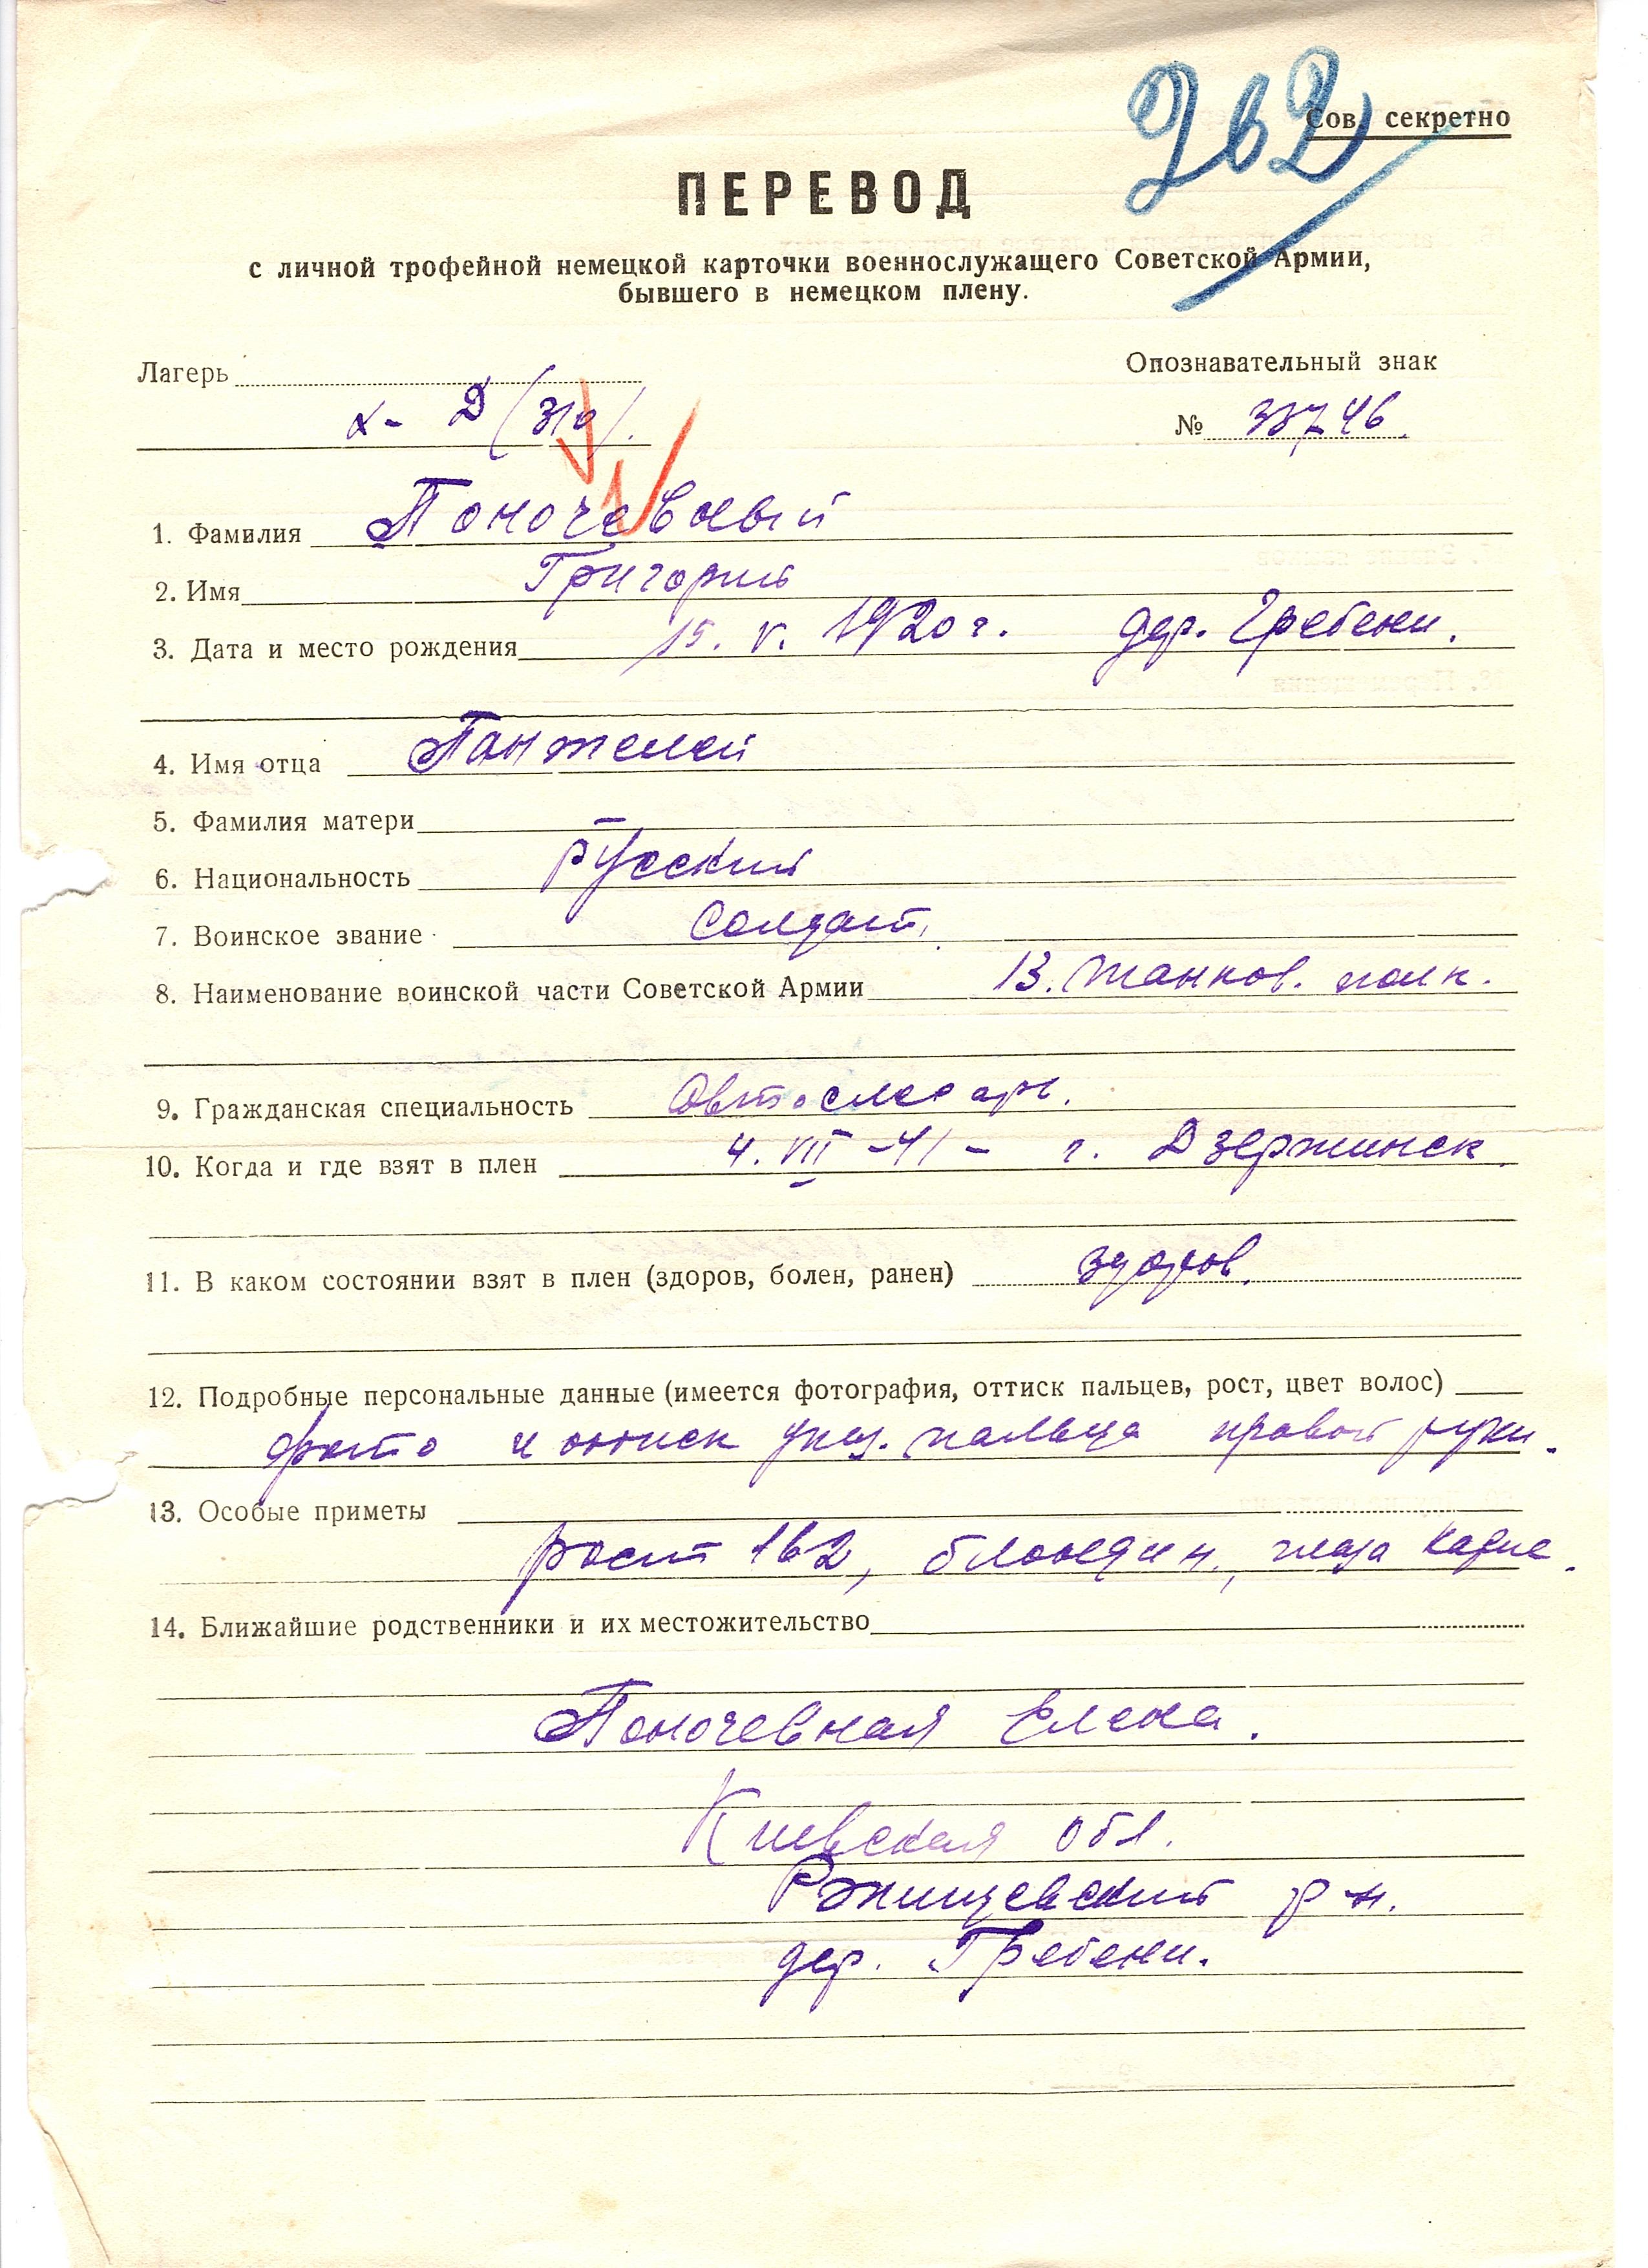 262
Сов. секретно
ПЕРЕВОД
с личной трофейной немецкой карточки военнослужащего Советской Армии,
бывшего в немецком плену.
Лагерь
Опознавательный знак
X- Д (310).
№ 33746.
1. Фамилия Поночевный
2. Имя Григорий
3. Дата и место рождения 15. V. 1920 г. дер. Гребени.
4. Имя отца Пантелей
5. Фамилия матери —
6. Национальность русский
7. Воинское звание Солдат.
8. Наименование воинской части Советской Армии 13. танков. полк.
9. Гражданская специальность Автослесарь.
10. Когда и где взят в плен 4. VII -41 - г. Дзержинск
11. В каком состоянии взят в плен (здоров, болен, ранен) здоров.
12. Подробные персональные данные (имеется фотография, оттиск пальцев, рост, цвет волос)
фото и оттиск указ. пальца правой руки.
13. Особые приметы
рост 162, блондин., глаза карие.
14. Ближайшие родственники и их местожительство
Поночевная Елена.
Киевская обл.
Ржищевский р-н.
дер. Гребени.